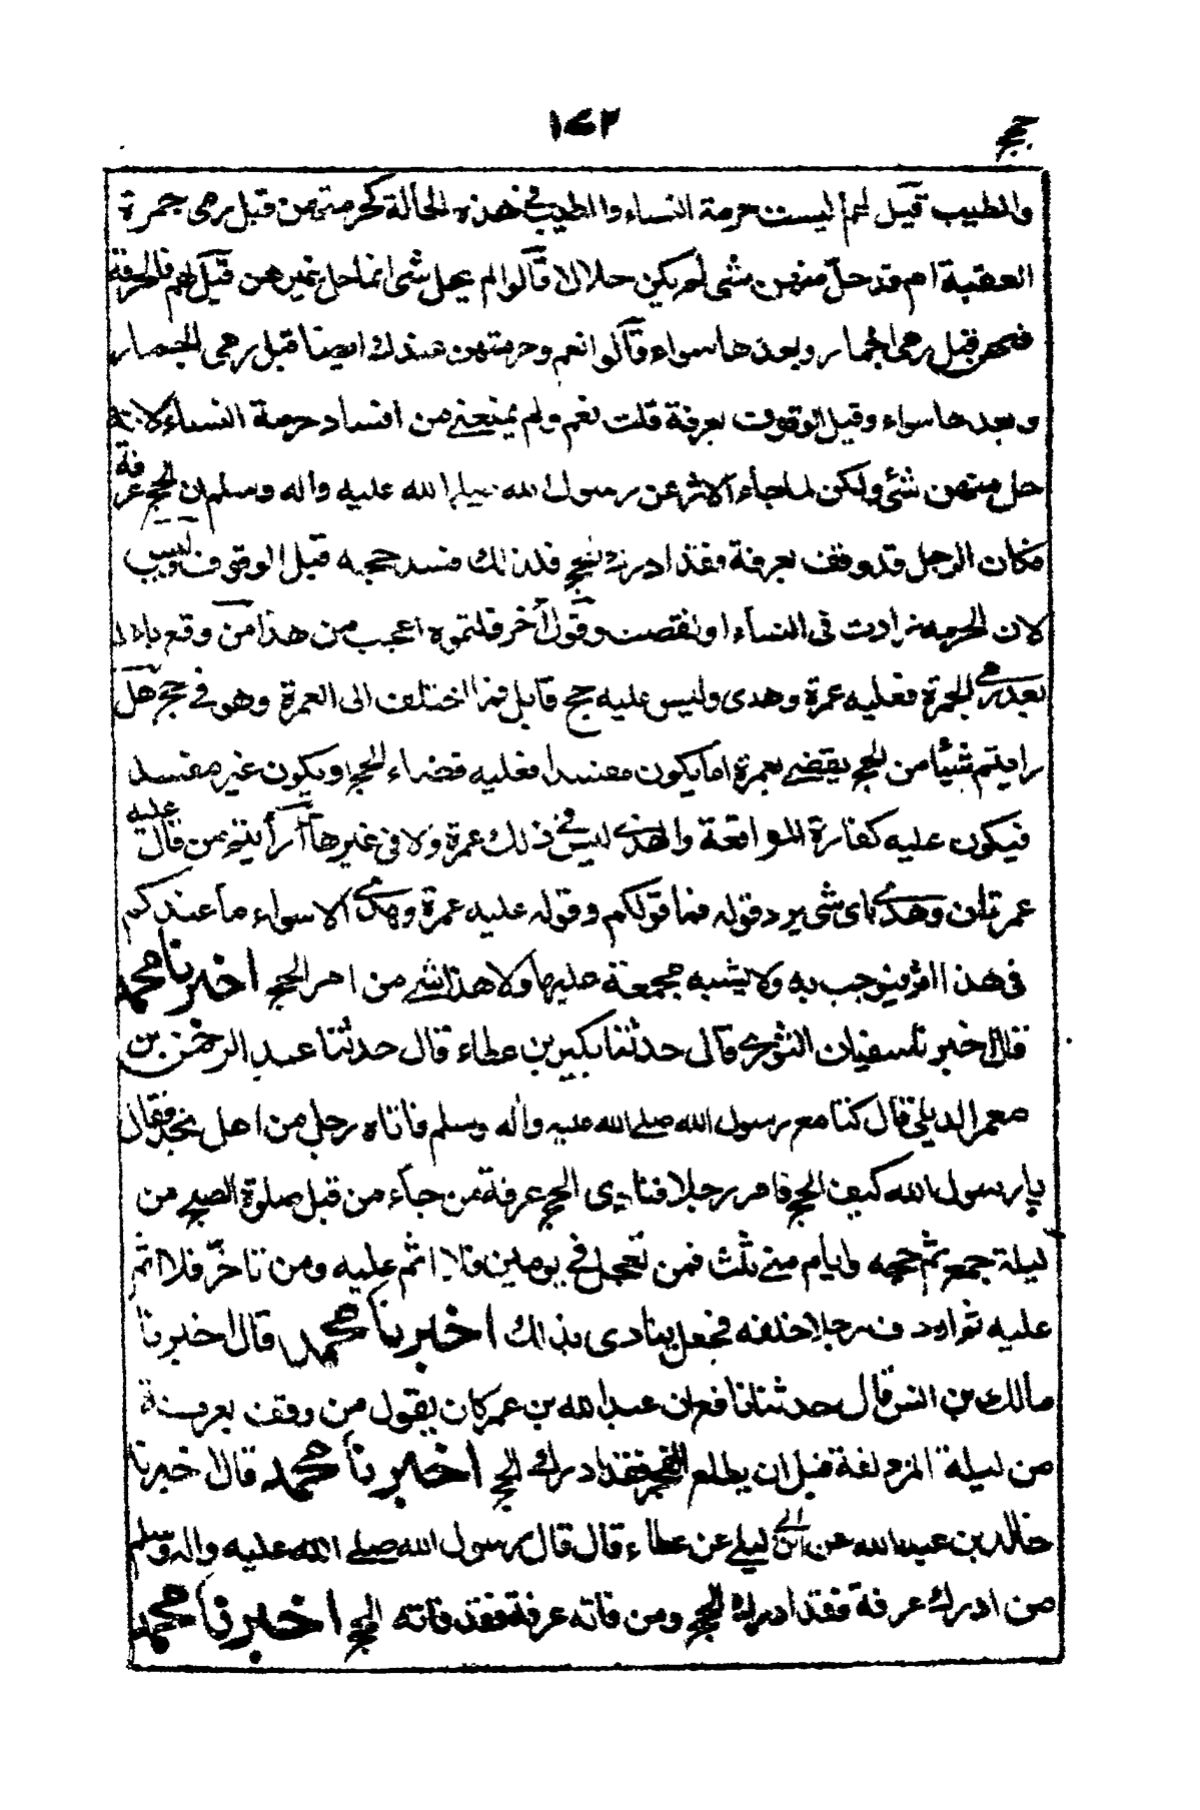 حج ١٧٢
والطيب قيل لهم أليست حرمة النساء والطيب في هذه الحالة كحرمتهن قبل رمي جمرة
العقبة ام قد حل منهن شئ لم يكن حلالا قالوا لم يحل شئ انما حل غيرهن قيل لهم فالحرفة
قبل رمي الجمار وبعدها سواء قالوا نعم وحرمتهن عندك ايضا قبل رمي الجمار
وبعدها سواء وقبل الوقوف بعرفة قلت نعم ولم يمنعني من افساد حرمة النساء لانه
حل منهن شئ ولكن لما جاء الاثر عن رسول الله صلى الله عليه واله وسلم ان الحج عرفة
فكان الرجل قد وقف بعرفة فقد ادرك الحج فلذلك فسد حجه قبل الوقوف ليس
لان الحرمة زادت في النساء او نقصت وقول اخر قلتموه اعجب من هذا من وقع
بعد رمي الجمرة فعليه عمرة وهدى وليس عليه حج قابل فما اختلف الى العمرة وهو في حج هل
رايتم شيئا من الحج يقضى بعمرة اما يكون مفسدا فعليه قضاء الحج او يكون غير مفسد
فيكون عليه كفارة المواقعة والهدى ليس في ذلك عمرة ولا في غيرها أرأيتم من قال عليه
عمرتان وهدى باى شئ يرد قوله فما قولكم وقوله عليه عمرة وهدى الا سواء ما عندكم
في هذا اثر فيوجب به ولا يشبه حجه عليها ولا هذا شئ من امر الحج اخبرنا محمد
قال اخبرنا سفيان الثوري قال حدثنا بكير بن عطاء قال حدثنا عبد الرحمن بن
معمر الديلي قال كنا مع رسول الله صلى الله عليه واله وسلم فاتاه رجل من اهل نجد فقال
يا رسول الله كيف الحج فامر رجلا فنادى الحج عرفة من جاء من قبل صلوة الصبح من
ليلة جمع تم حجه وايام منى ثلث فمن تعجل في يومين فلا اثم عليه ومن تاخر فلا اثم
عليه ثم اردف رجلا خلفه فجعل ينادى بذلك اخبرنا محمد قال اخبرنا
مالك بن انس قال حدثنا نافع ان عبد الله بن عمر كان يقول من وقف بعرفة
من ليلة المزدلفة قبل ان يطلع الفجر فقد ادرك الحج اخبرنا محمد قال اخبرنا
خالد بن عبد الله عن ابن ابي ليلى عن عطاء قال قال رسول الله صلى الله عليه واله وسلم
من ادرك عرفة فقد ادرك الحج ومن فاته عرفة فقد فاته الحج اخبرنا محمد